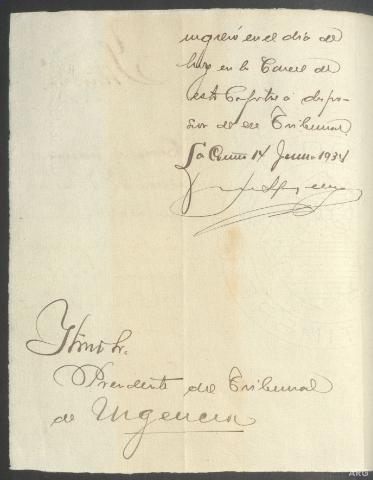 ingresó en el día de
hoy en la Carcel de
esta Capital a dispo-
sición de ese Tribunal.
La Coruña 14 Junio 1934
Iltmo Sr.
Presidente del Tribunal
de Urgencia
ARG